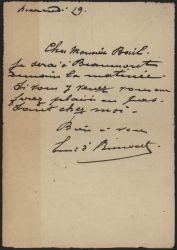 mercredi 19.
Cher Monsieur Bail.
Je serai à Beaumont
demain la matinée
Si vous y venez vous me
ferez plaisir en pas-
sant chez moi.
Bien à vous